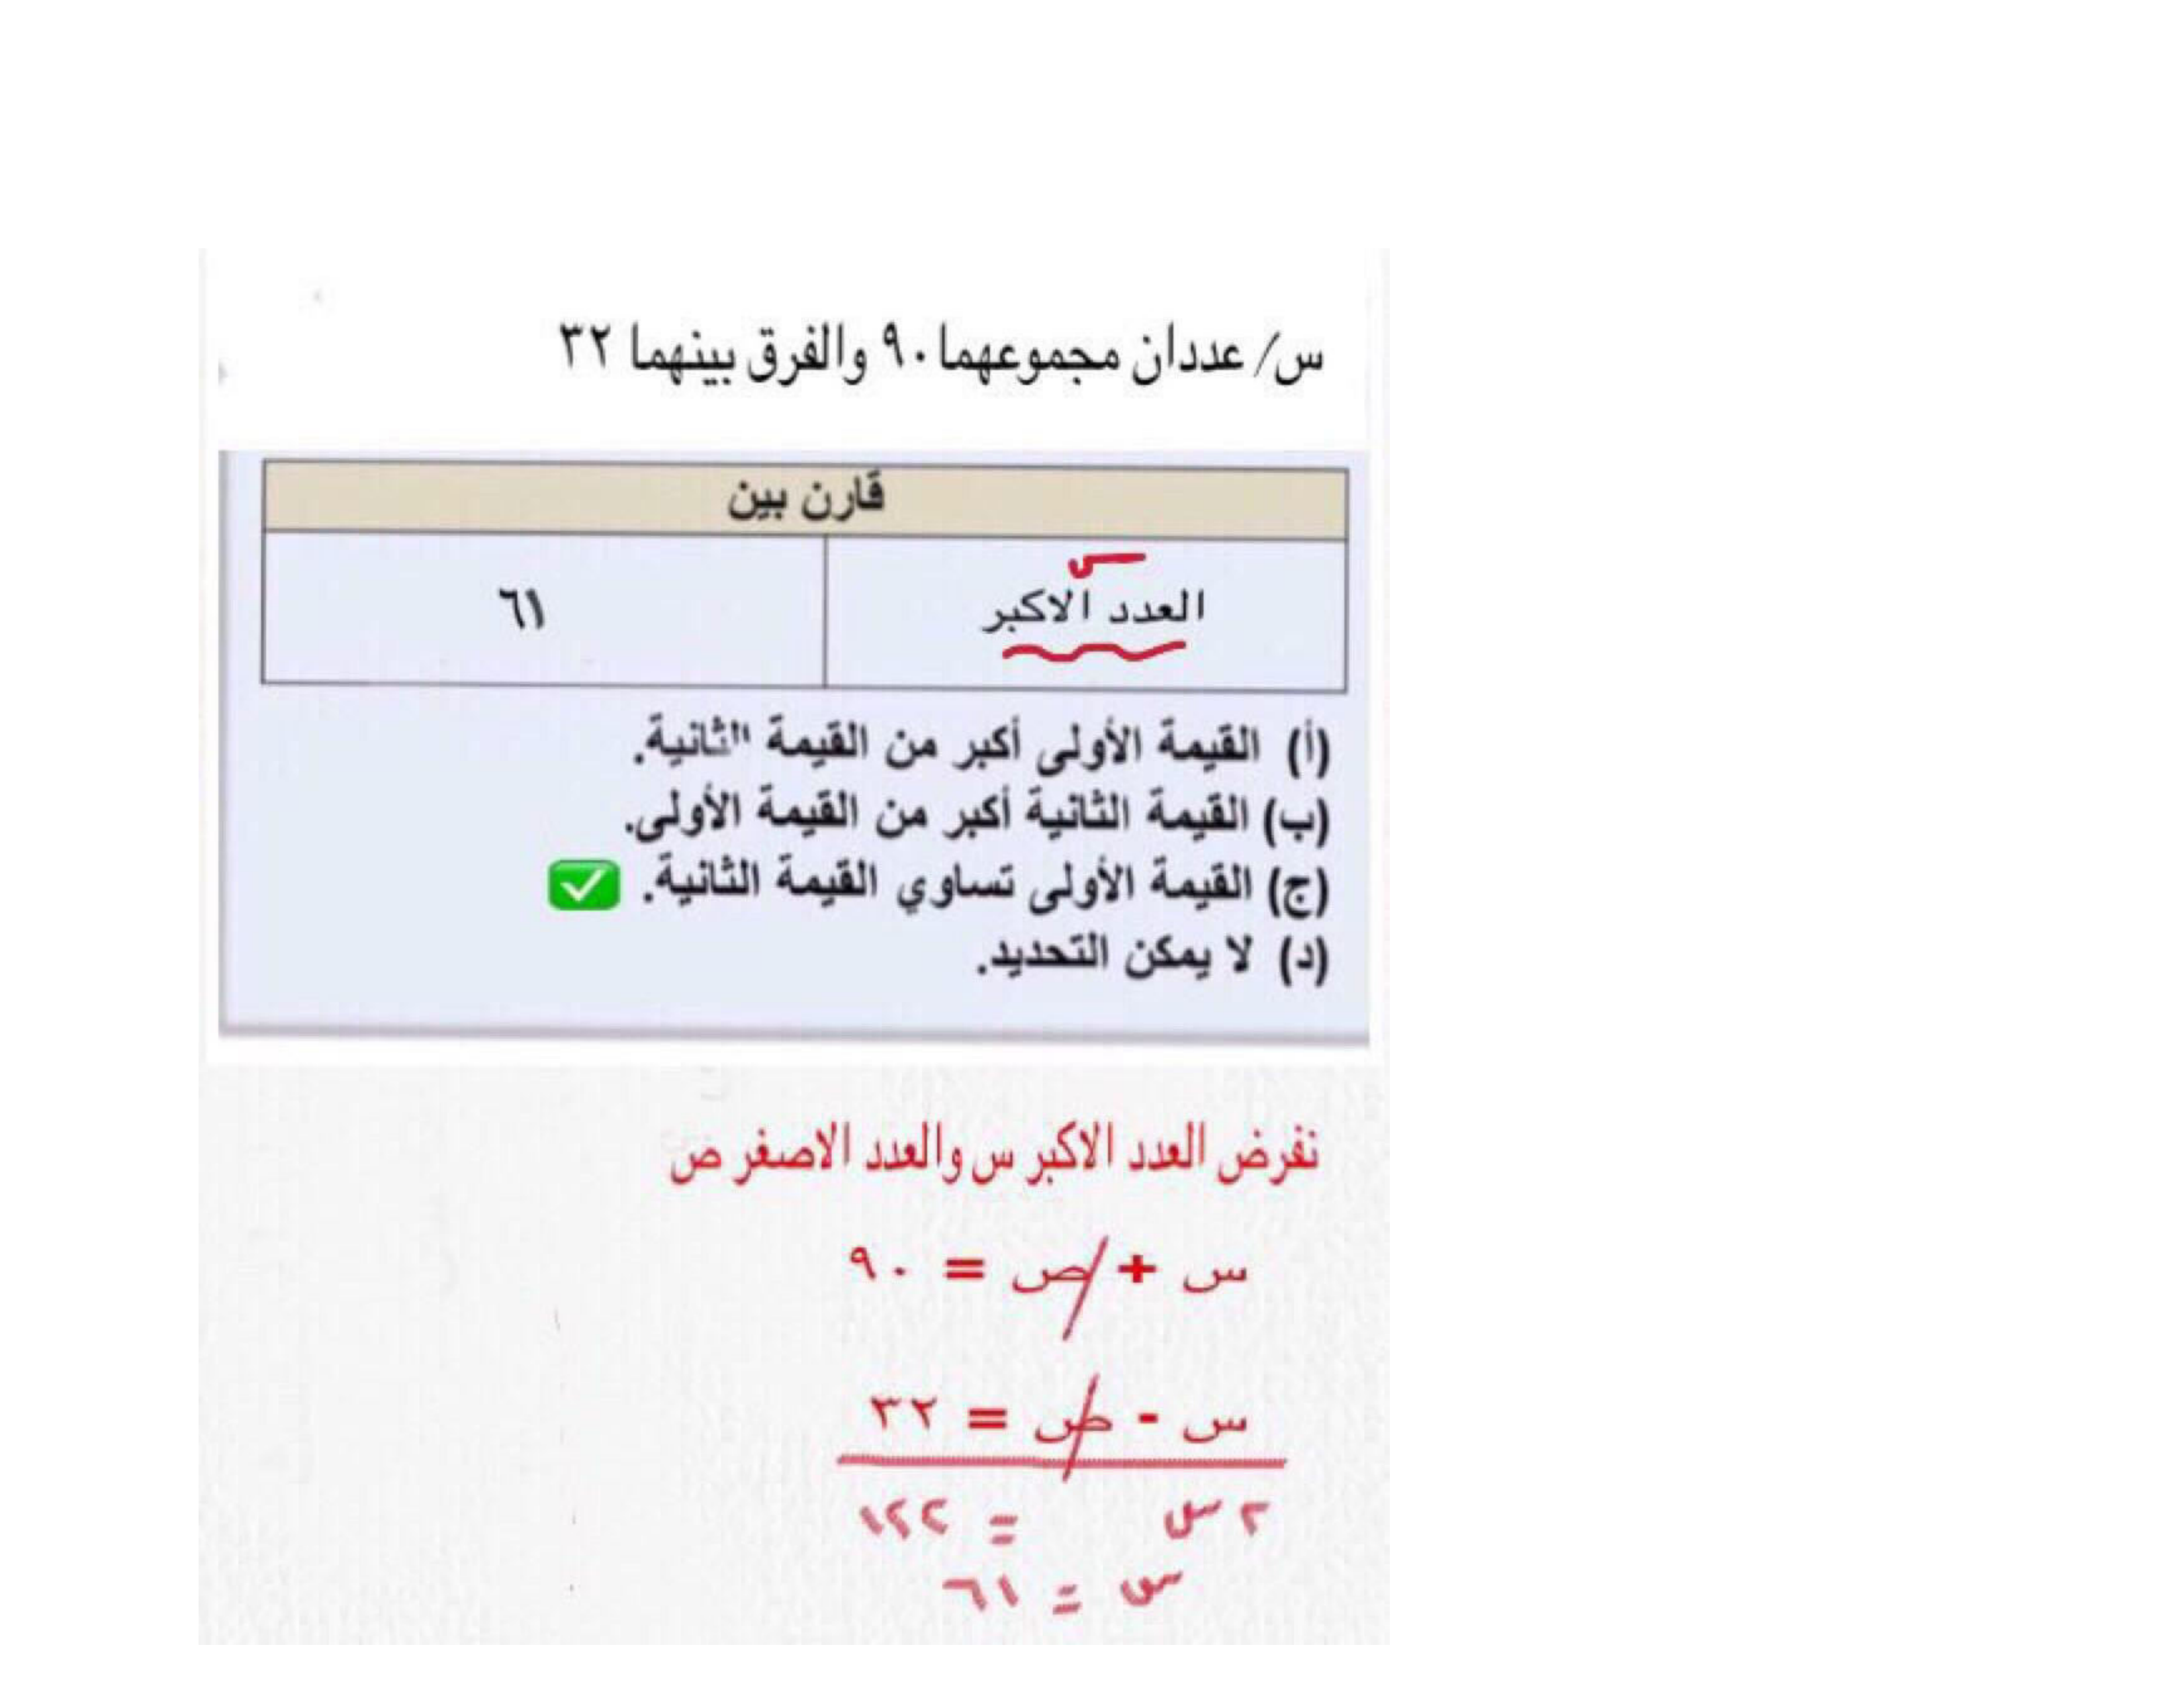 س/ عددان مجموعهما ٩٠ والفرق بينهما ٣٢
قارن بين
س
العدد الاكبر
٦١
(أ) القيمة الأولى أكبر من القيمة الثانية.
(ب) القيمة الثانية أكبر من القيمة الأولى.
(ج) القيمة الأولى تساوي القيمة الثانية.
(د) لا يمكن التحديد.
نفرض العدد الاكبر س والعدد الاصغر ص
س + ص = ٩٠
س - ص = ٣٢
٢ س = ١٢٢
س = ٦١